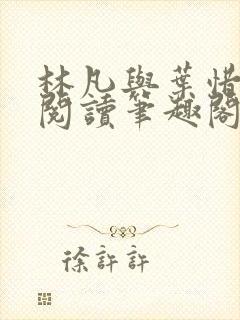 林凡與葉惜
閱讀筆趣閣
徐許許